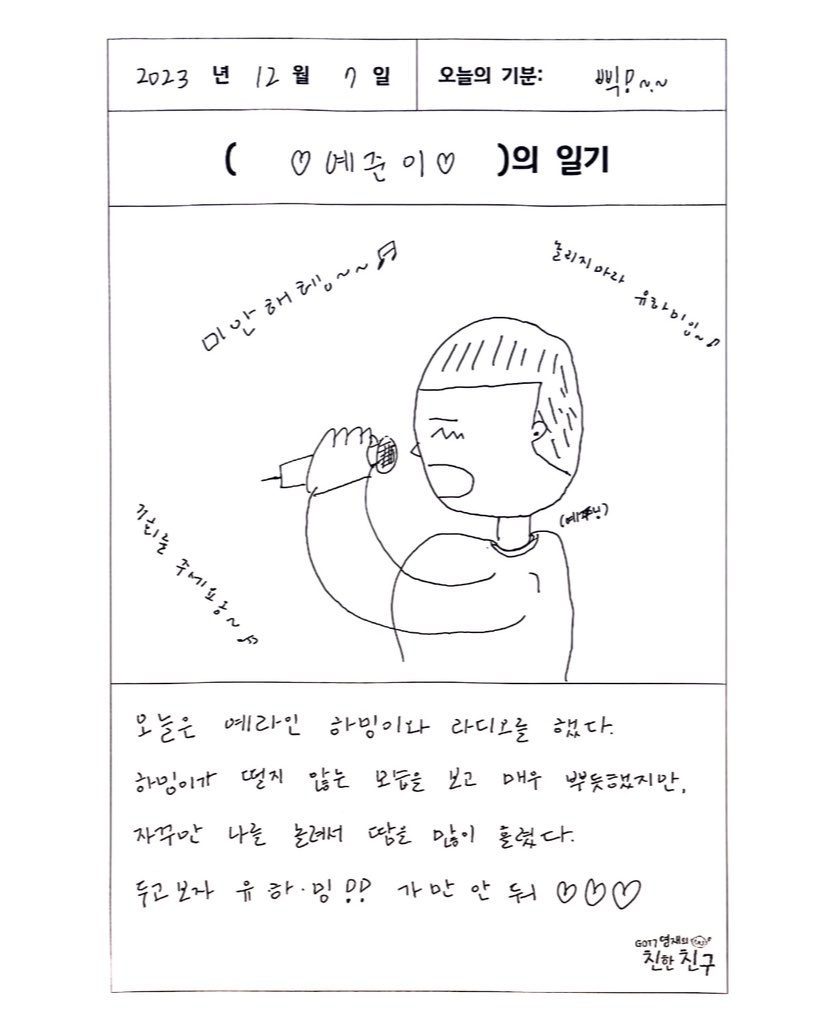 2023 년 12 월 7 일 오늘의 기분: 삑!~.~
( ♡예준이♡ )의 일기
미안해헤~~♬
놀리지마라
유하미잉~♪
기회를 주세요옹~♫
오늘은 예라인 하밍이와 라디오를 했다.
하밍이가 떨지 않는 모습을 보고 매우 뿌듯했지만,
자꾸만 나를 놀려서 땀을 많이 흘렸다.
두고보자 유·하·밍!! 가만 안 둬 ♡♡♡
GOT7 영재의
친한친구